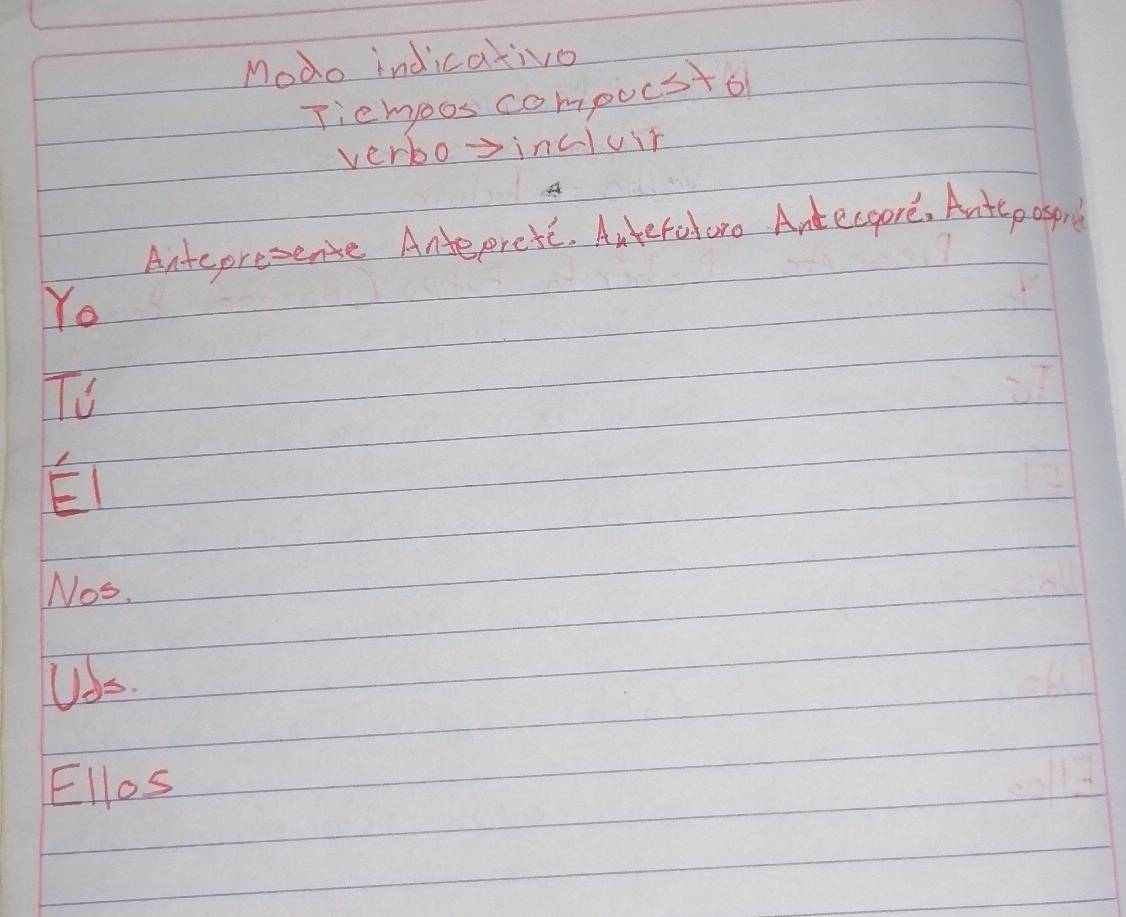 Modo indicativo
Tiempos compuestos
verbo → incluir
Antepresente Antepreté. Antefuturo Antecopré. Antepospré
Yo
Tú
Él
Nos.
Uds.
Ellos